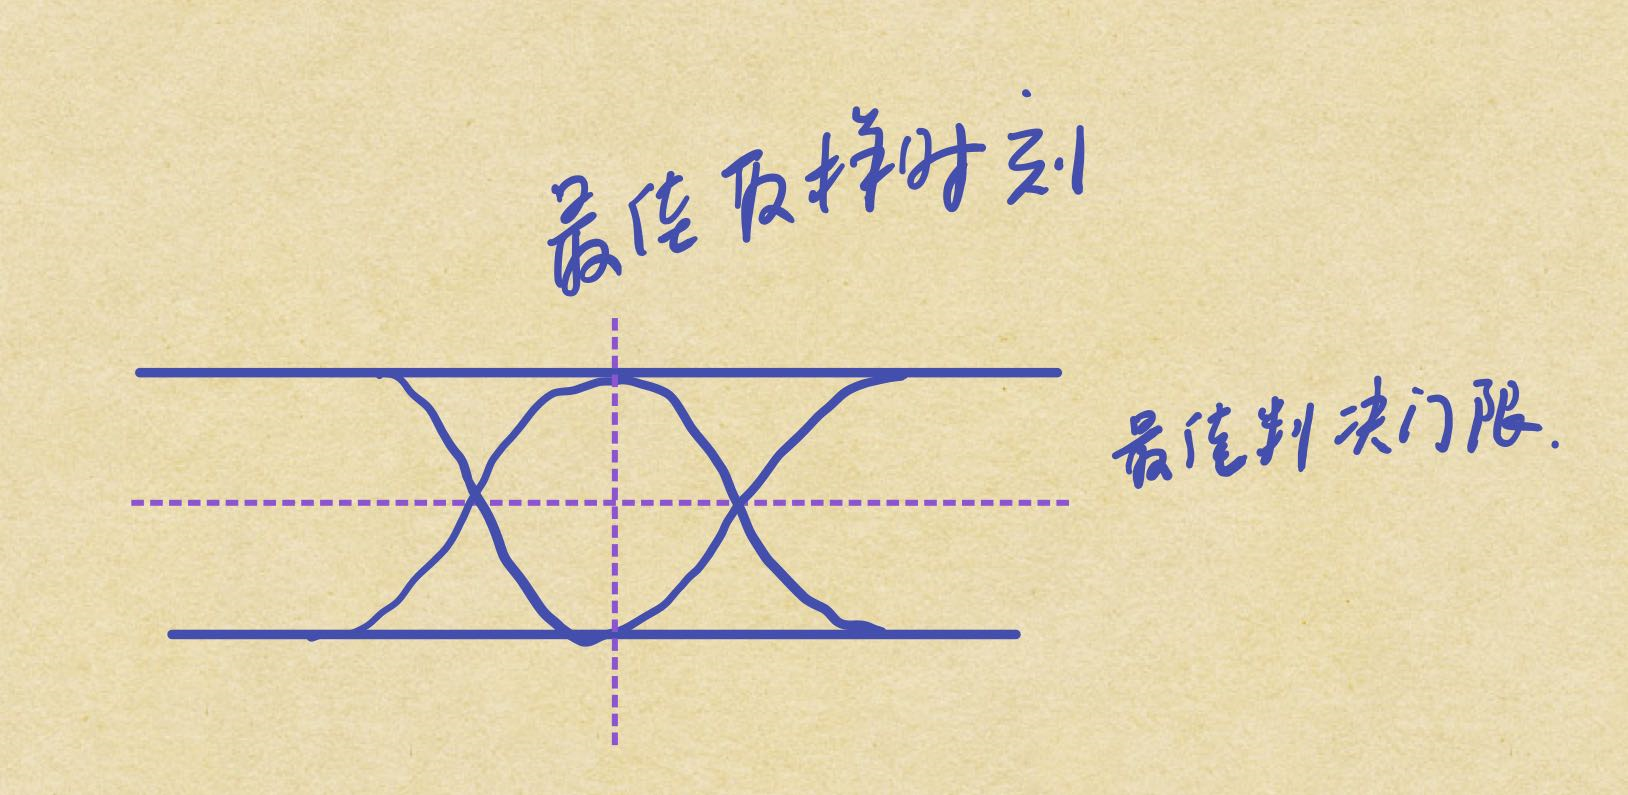 最佳取样时刻
最佳判决门限.